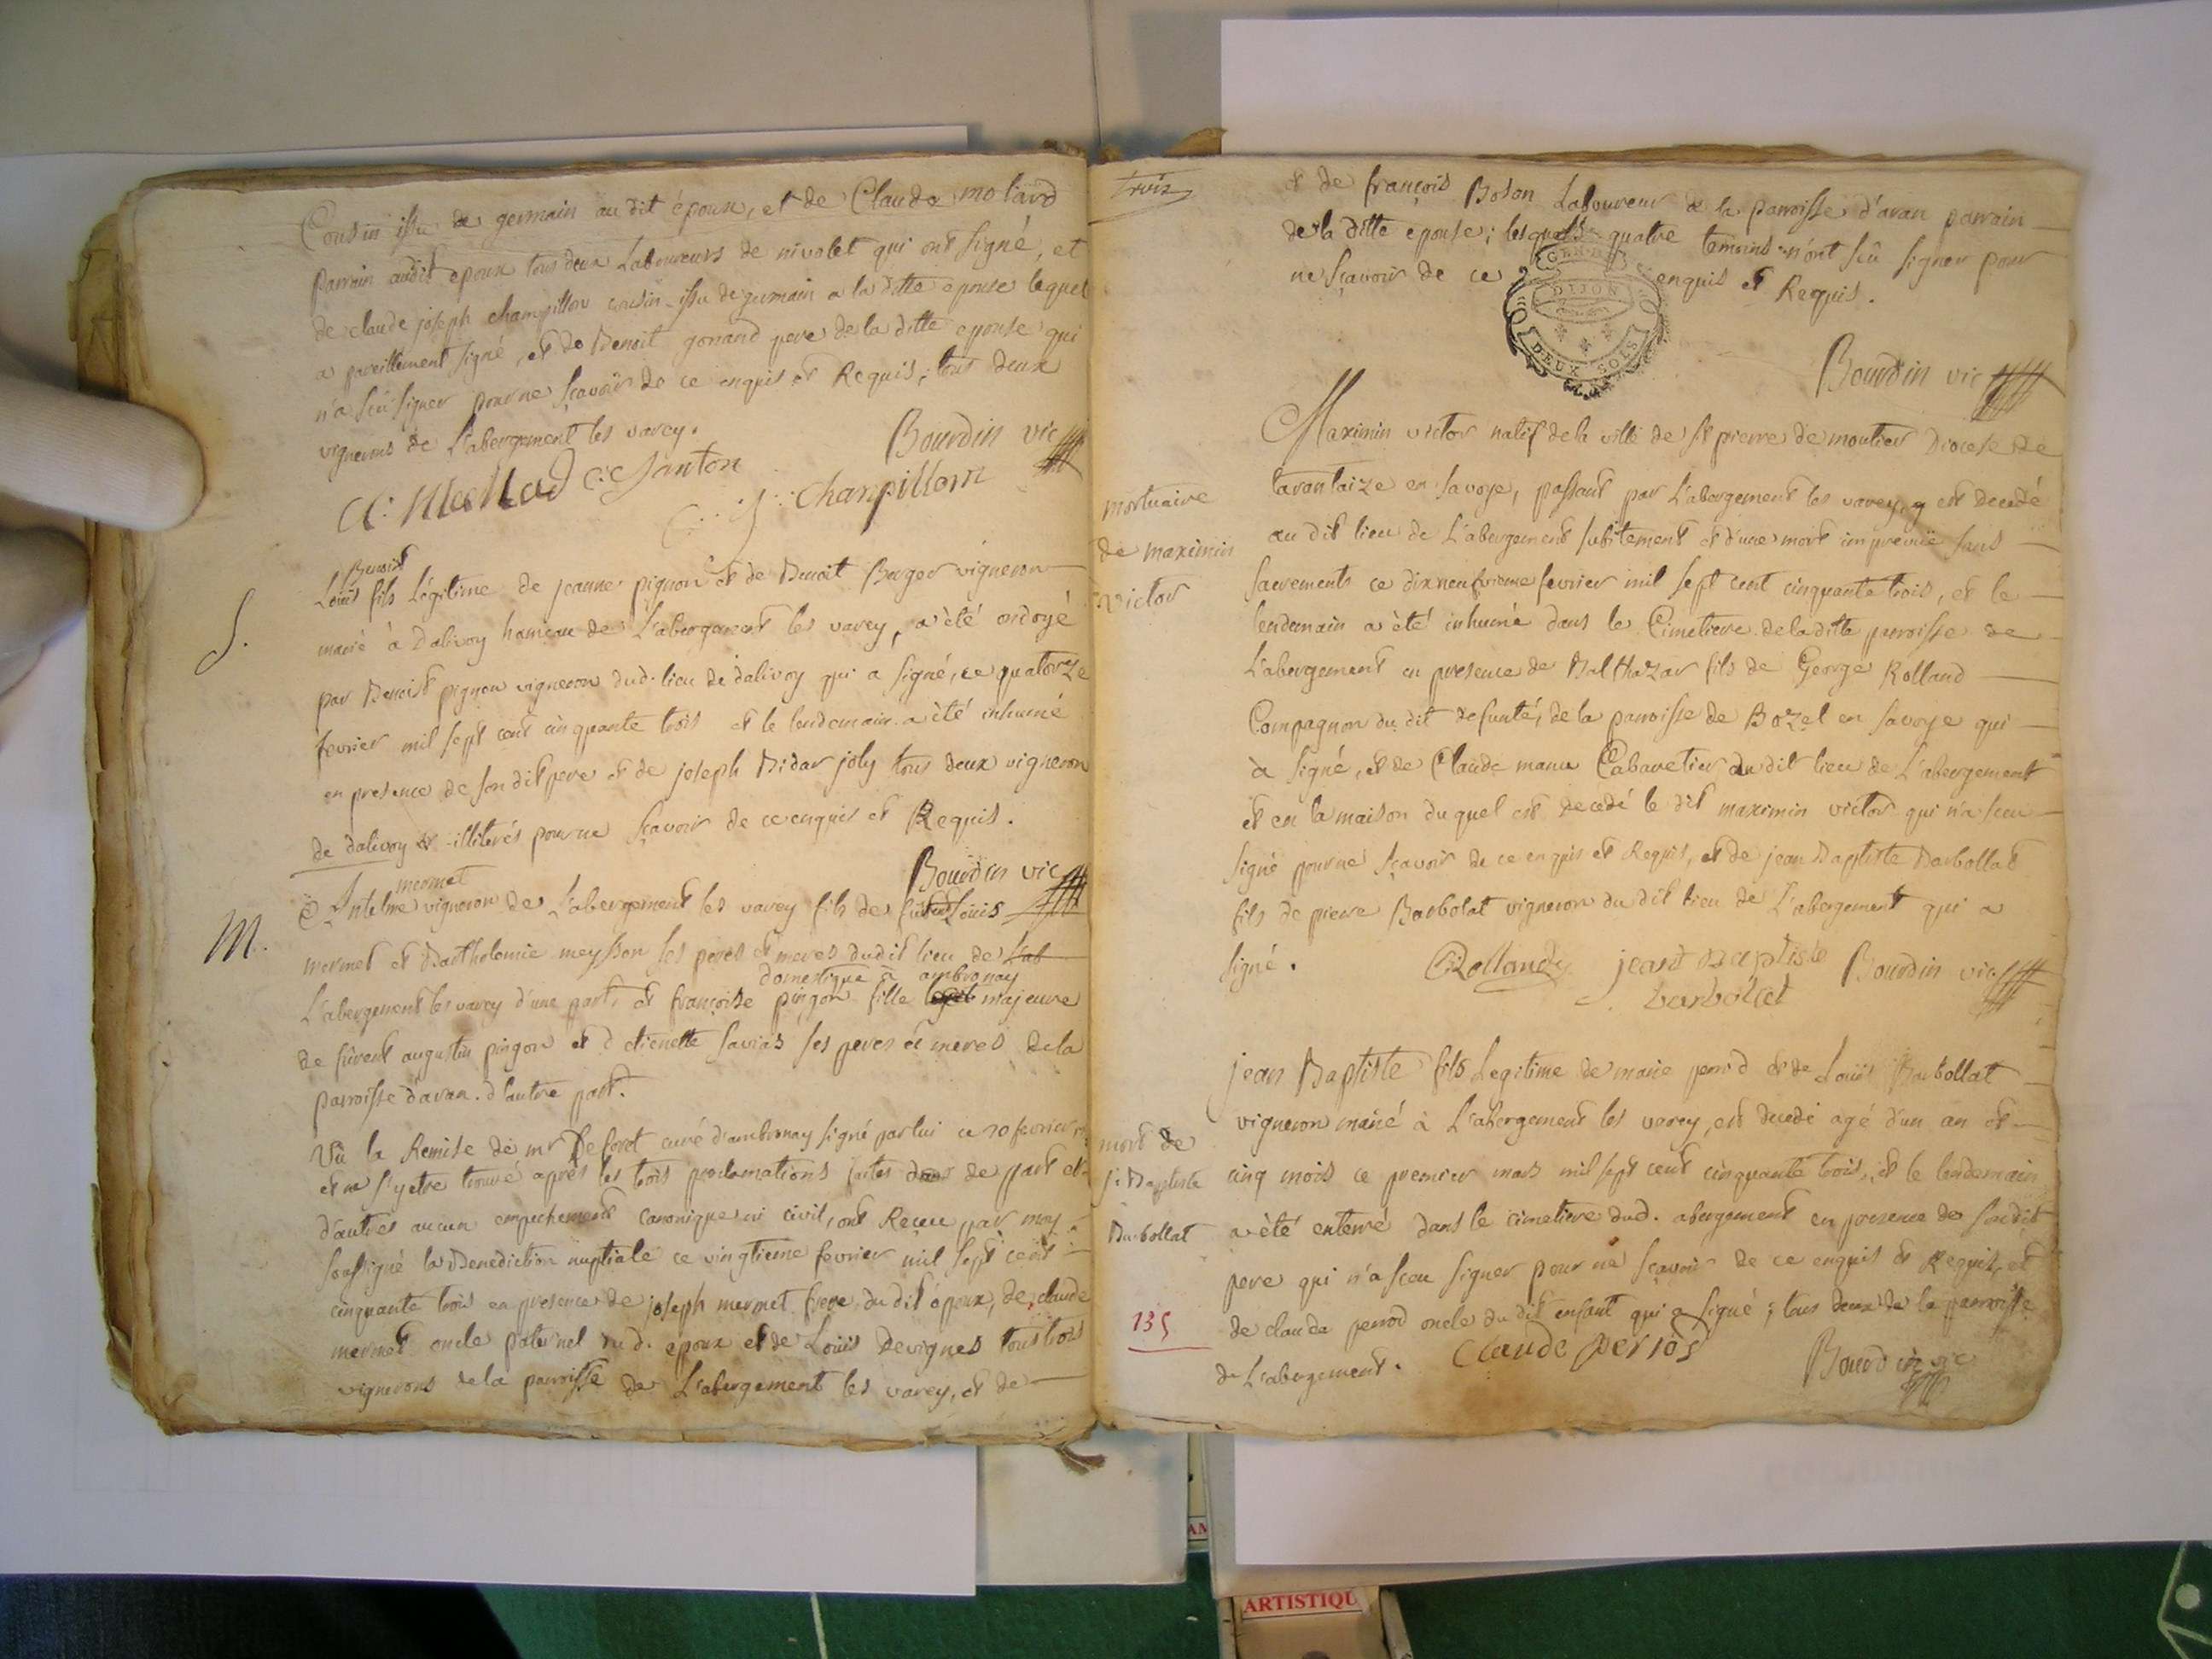 Cousin issu de germain au dit époux, et de Claude molard
parrain audit epoux tous deux Laboureurs de nivolet qui ont signé, et
de claude joseph champillon cousin issu de germain a la ditte epouse lequel
a pareillement signé, et de Benoit gonrand pere de la ditte epouse qui
n'a sçu signer pour ne sçavoir de ce enquis et Requis; tous deux
vignerons de L'abergement les varey.
Bourdin vic
C: Janton
J: Champillom
S.
Benoist
Louis fils Légitime de jeanne pignon et de Benoit Berger vigneron
marié à Dalivoy hameau de L'abergement les varey, a été ondoyé
par Benoist pignon vigneron dud. lieu de dalivoy qui a signé, ce quatorze
fevrier mil sept cent cinquante trois et le lendemain a été inhumé
en presence de son dit pere et de joseph Didar joly tous deux vigneron
de dalivoy et illiterés pour ne sçavoir de ce enquis et Requis.
Bourdin vic
M.
mermet
Antelme vigneron de L'abergement les varey fils de Louis
mermet et Bartholemie meysson ses peres et meres dudit lieu de L'ab
domestique à ambronay
L'abergement les varey d'une part, et françoise pingon fille legit majeure
de furent augustin pingon et d etienette savias ses peres et meres dela
parroisse d'avan. d'autre part.
Vû la Remise de mr Deforet curé d'ambronay signé par lui ce 20 fevrier
et ne s'y etre trouvé après les trois proclamations faites de part et
d'autres aucun empechement canonique ni civil, ont Reçeu par moy
soussigné la Benediction nuptiale ce vingtieme fevrier mil sept cent
cinquante trois en presence de joseph mermet frere du dit epoux, de claude
mermet oncle paternel dud. epoux et de Louis Devignes tous trois
vignerons dela parroisse de L'abergement les varey, et de
trois
et de françois Boson Laboureur de la parroisse d'avan parrain
de la ditte épouse; lesquels quatre temoins n'ont sçû signer pour
ne sçavoir de ce enquis et Requis.
DIJON
DEUX SOLS
Bourdin vic
mortuaire
de maximin
victor
Maximin victor natif dela ville de st pierre de moutier Diocese de
tarantaize en savoye, passant par L'abergement les varey, y est decedé
au dit lieu de L'abergement subitement et d'une mort imprevüe sans
sacrements ce dix neufvieme fevrier mil sept cent cinquante trois, et le
lendemain a été inhumé dans le Cimetiere de la ditte parroisse de
L'abergement en presence de Balthazar fils de George Rolland
Compagnon du dit defunté, de la parroisse de Bozel en savoye qui
à signé, et de Claude manu Cabaretier du dit lieu de L'abergement
et en la maison du quel est decedé le dit maximin victor qui n'a sceu
signé pour ne sçavoir de ce enquis et Requis, et de jean Baptiste Barbollat
fils de pierre Barbolat vigneron du dit lieu de L'abergement qui a
signé.
Rolland
jeant Baptiste
barbollet
Bourdin vic
mort de
j. Baptiste
Barbollat
jean Baptiste fils Legitime de marie perrod et de Louis Barbollat
vigneron marié à L'abergement les varey, est decedé agé d'un an et
cinq mois ce premier mars mil sept cent cinquante trois, et le lendemain
a été enterré dans le cimetiere dud. abergement en presence de sondit
pere qui n'a sceu signer pour ne sçavoir de ce enquis et Requis, et
de claude perrod oncle du dit enfant qui a signé; tous deux de la parroisse
de L'abergement.
Claude perrod
Bourdin vic
135
ARTISTIQU